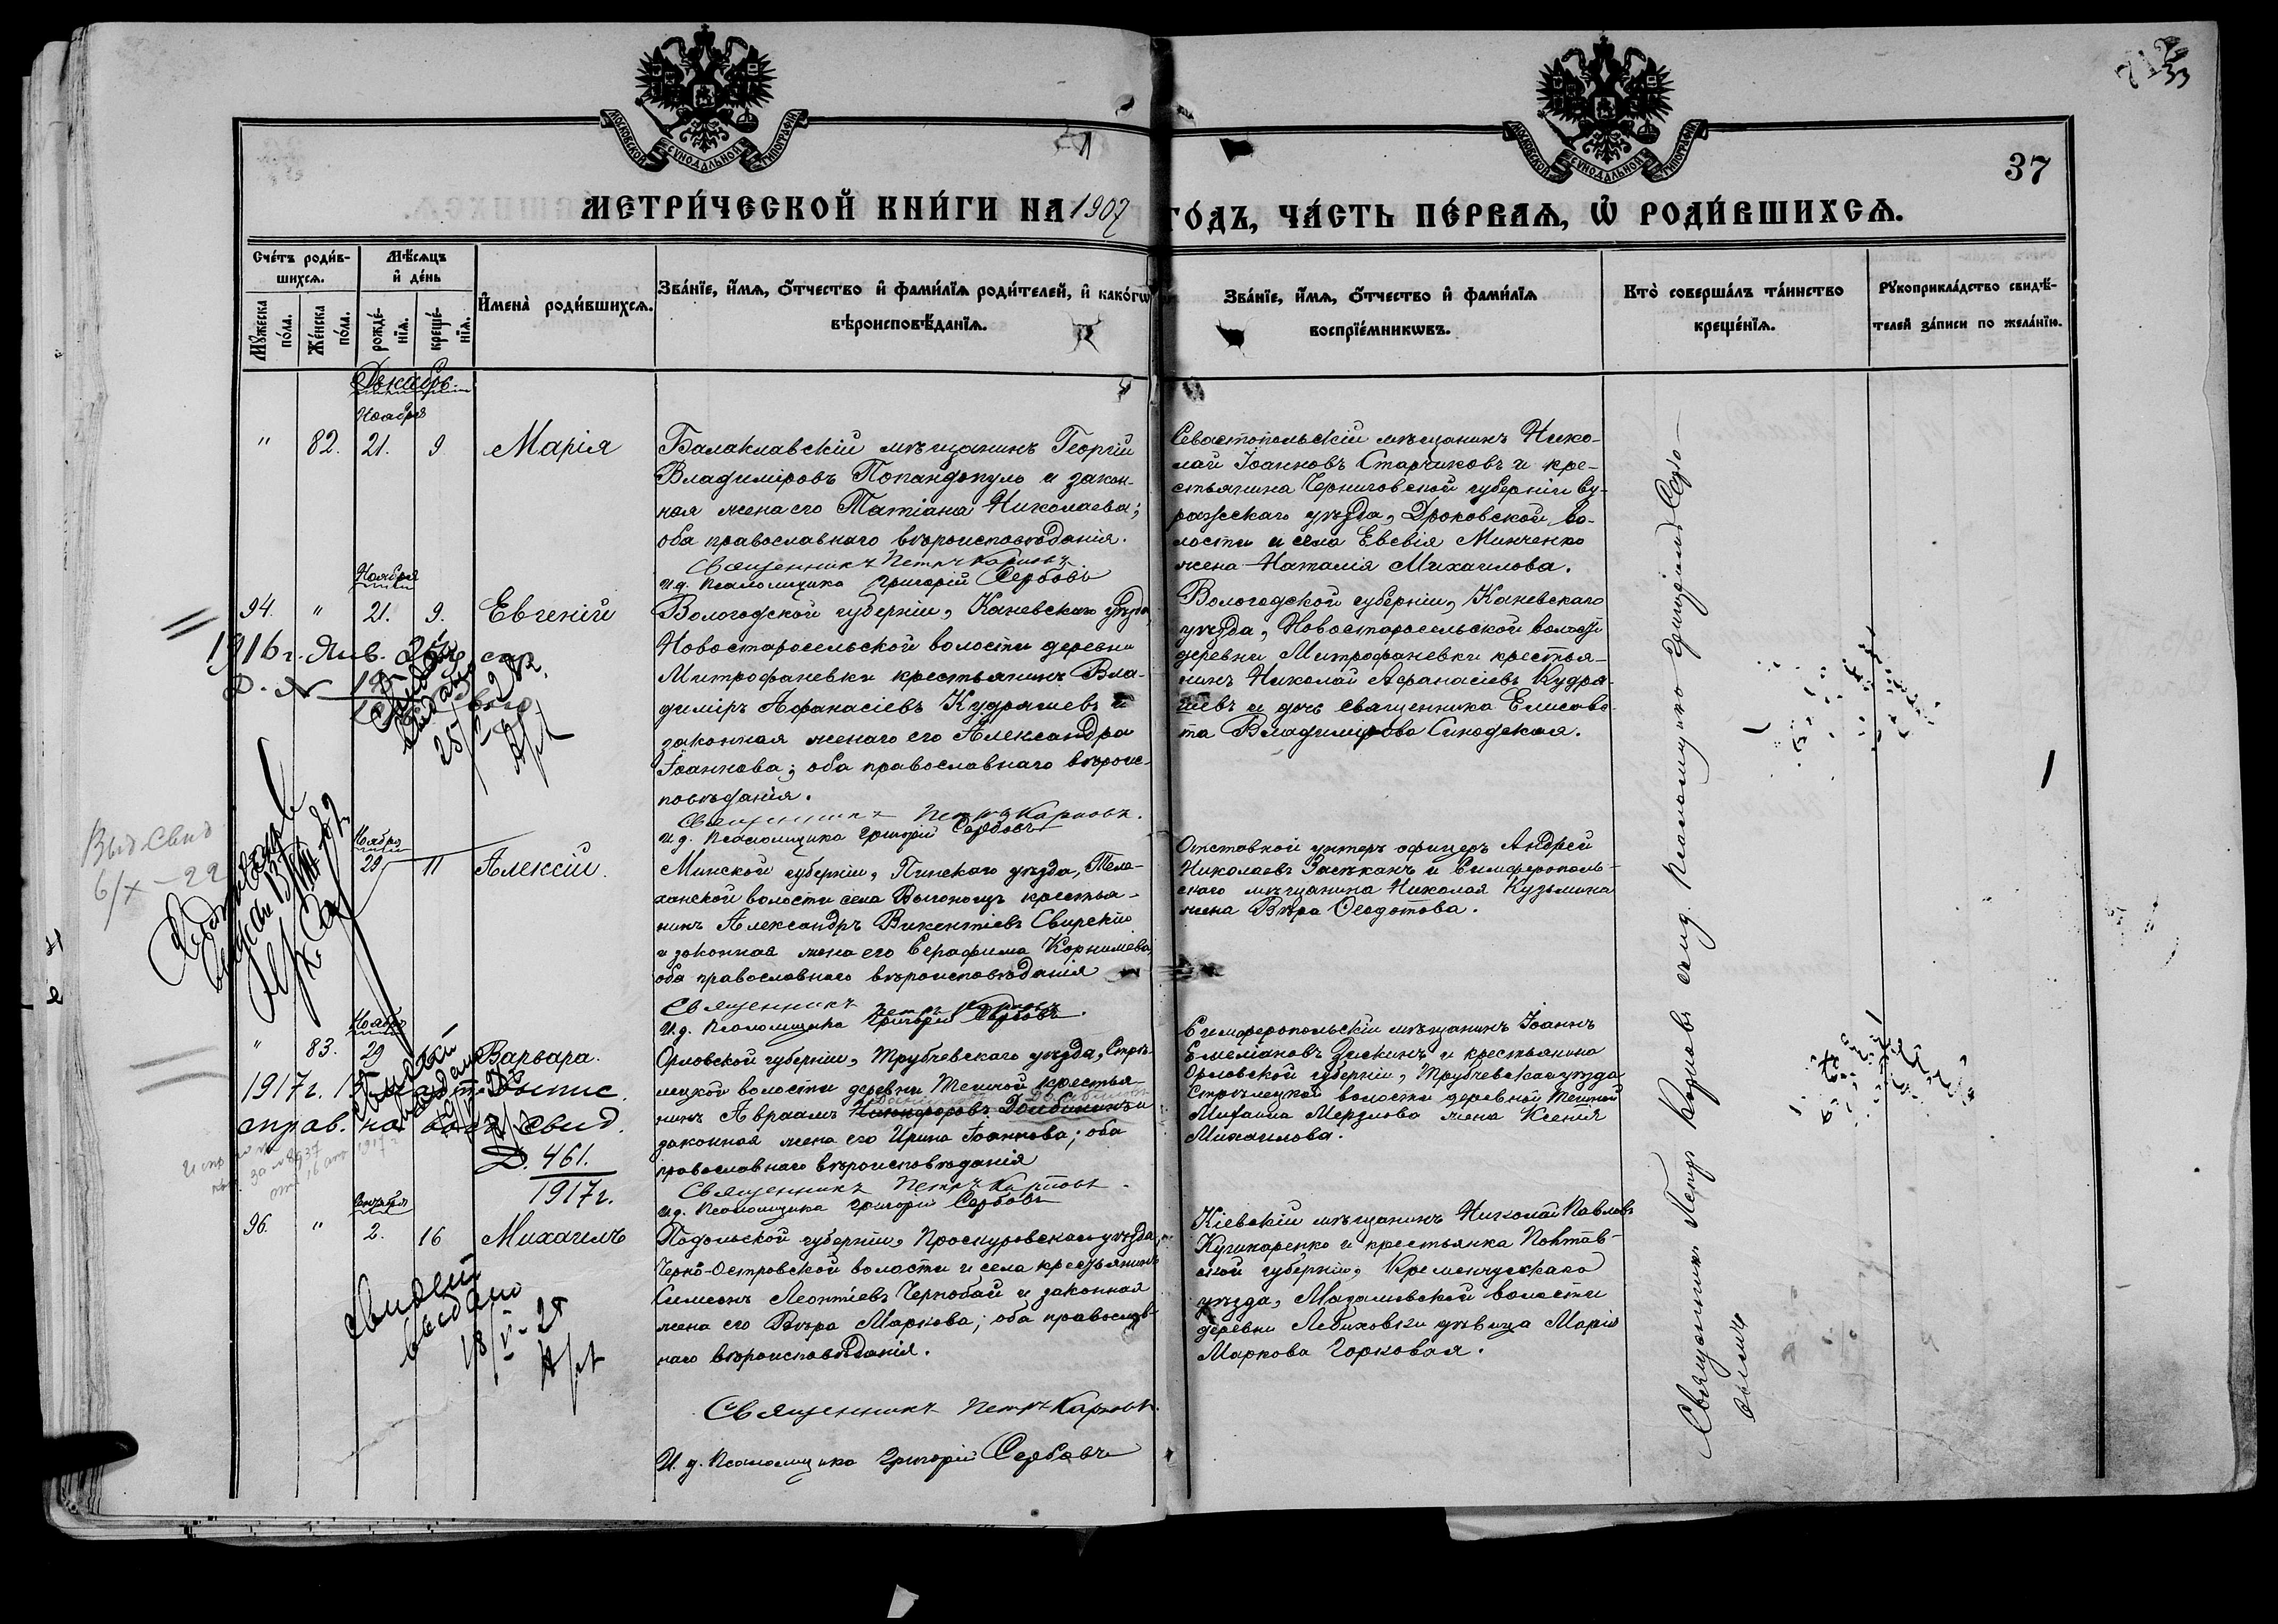 МОСКОВСКОЙ СУНОДАЛЬНОЙ ТИПОГРАФІИ
МОСКОВСКОЙ СУНОДАЛЬНОЙ ТИПОГРАФІИ
37
МЕТРИ́ЧЕСКОЙ КНИ́ГИ НА 1907 ГО́ДЪ, ЧА́СТЬ ПЕ́РВАѦ, Ѡ҆ РОДИ́ВШИХСѦ.
Сче́тъ роди́в-
шихсѧ.
Мꙋ́жеска по́ла.
Же́нска по́ла.
Мѣ́сѧцъ
и҆ де́нь
рожде́-
нїѧ.
креще́-
нїѧ.
И҆мена̀ роди́вшихсѧ.
Зва́нїе, и҆́мѧ, ѻ҆́тчество и҆ фами́лїѧ роди́телей, и҆ како́гѡ
вѣроисповѣ́данїѧ.
Зва́нїе, и҆́мѧ, ѻ҆́тчество и҆ фами́лїѧ
воспрїе́мникѡвъ.
Кто̀ соверша́лъ та́инство
креще́нїѧ.
Рꙋкоприкла́дство свидѣ́-
телей за́писи по жела́нїю.
Декабрь.
Ноября
" 82. 21. 9. Марія
Балаклавскій мѣщанинъ Георгій
Владиміровъ Попандопуло и закон-
ная жена его Татіана Николаева;
оба православнаго вѣроисповѣданія.
Священникъ Петръ Карповъ
И.д. псаломщика Григорій Сербовъ
Севастопольскій мѣщанинъ Нико-
лай Іоанновъ Старчиковъ и кре-
стьянина Черниговской губерніи Су-
ражскаго уѣзда, Дроковской во-
лости и села Евсевія Минченко
жена Наталія Михаилова.
Ноября
94. " 21. 9. Евгеній
Вологодской губерніи, Каневскаго уѣзда,
Новостаросельской волости деревни
Митрофаневки крестьянинъ Вла-
диміръ Афанасіевъ Кудряшевъ и
законная женаго его Александра
Іоаннова; оба православнаго вѣроис-
повѣданія.
Священникъ Петръ Карповъ.
И.д. псаломщика Григорій Сербовъ
Вологодской губерніи, Каневскаго
уѣзда, Новостаросельской волости
деревни Митрофаневки крестья-
нинъ Николай Афанасіевъ Кудря-
шевъ и дочь священника Елисаве-
та Владимірова Синодская.
1916 г. Янв.
Выд свид
6/X-22
Ноября
29 11 Алексій.
Минской губерніи, Пинскаго уѣзда, Теле-
ханской волости села Выгонощъ крестья-
нинъ Александръ Викентіевъ Свирскій
и законная жена его Серафима Корнилиева
оба православнаго вѣроисповѣданія
Священникъ Петръ Карповъ
И.д. псаломщика Григорій Сербовъ.
Отставной унтеръ офицеръ Андрей
Николаевъ Засѣканъ и Симферополь-
скаго мѣщанина Николая Кузьмина
жена Вѣра Ѳеодотова.
Ноября
" 83. 29 Варвара.
Орловской губерніи, Трубчевскаго уѣзда, Стрѣ-
лецкой волости деревни Темной крестья-
нинъ Авраамъ Никифоровъ Долбикинъ и
законная жена его Ирина Іоаннова; оба
православнаго вѣроисповѣданія
Священникъ Петръ Карповъ.
И.д. псаломщика Григорій Сербовъ
Симферопольскій мѣщанинъ Іоаннъ
Емеліановъ Зискинъ и крестьянина
Орловской губерніи, Трубчевскаго уѣзда
Стрѣлецкой волости деревной Темной
Михаила Мерзлова жена Ксенія
Михаилова.
1917 г.
справ. на свид.
Д. 461.
1917 г.
Декабря
96. " 2. 16 Михаилъ
Подольской губерніи, Проскуровскаго уѣзда,
Черно-Островской волости и села крестьянинъ
Симеонъ Леонтіевъ Чернобай и законная
жена его Вѣра Маркова; оба православ-
наго вѣроисповѣданія.
Священникъ Петръ Карповъ.
И.д. псаломщика Григорій Сербовъ
Кіевскій мѣщанинъ Николай Павловъ
Кушнаренко и крестьянка Полтав-
ской губерніи, Кременчугскаго
уѣзда, деревни дѣвица Марія
Маркова Горковая.
выдано
18/V-24
Священникъ Петръ Карповъ съ и.д. псаломщика Григоріемъ Сербо-
вымъ